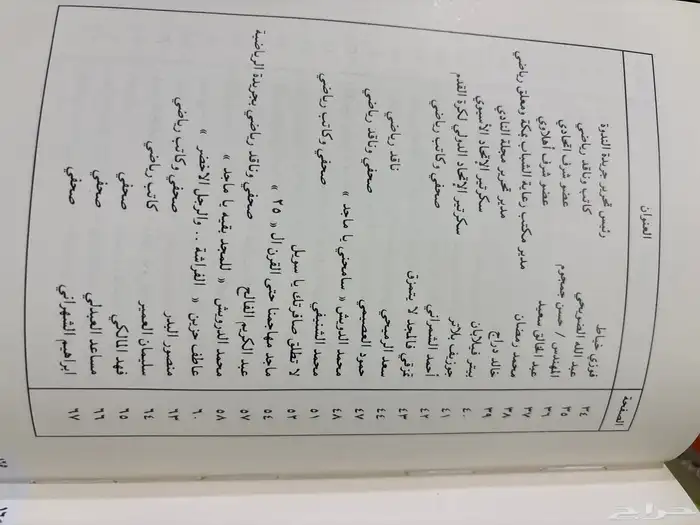 العنوان الصفحة
فوزي خياط رئيس تحرير جريدة الندوة ٣٤
عبد الله الضويحي كاتب وناقد رياضي ٣٥
المهندس / حسن جمجوم عضو شرف اتحادي ٣٦
عبد الخالق سعيد عضو شرف أهلاوي ٣٧
محمد رمضان مدير مكتب رعاية الشباب بمكة ومعلق رياضي ٣٨
خالد دراج مدير تحرير مجلة النادي ٣٩
بيتر فيلابان سكرتير الإتحاد الآسيوي ٤٠
جوزيف بلاتر سكرتير الإتحاد الدولي لكرة القدم ٤١
أحمد الشمراني صحفي وكاتب رياضي ٤٢
تمزقي فالمجد لا يتمزق ٤٣
سعد الرميحي ناقد رياضي ٤٤
حمود العصيمي صحفي وناقد رياضي ٤٧
محمد الدويش « سامحني يا ماجد » ٤٨
محمد الشنيفي صحفي وكاتب رياضي ٥١
لا تطلق صافرتك يا سويل ٥٢
ماجد مهاجمنا حتى القرن ال « ٢٥ » ٥٤
عبد الكريم الفالح صحفي وناقد رياضي بجريدة الرياضية ٥٧
محمد الدرويش « للمجد بقيه يا ماجد » ٥٨
عاطف حزين « الفراشة .. والرجل الأخضر » ٦٠
منصور البدر صحفي وكاتب رياضي ٦٣
سليمان العمير كاتب رياضي ٦٤
فهد المالكي صحفي ٦٥
مساعد العبدلي صحفي ٦٦
ابراهيم الشهراني صحفي ٦٧
حراج